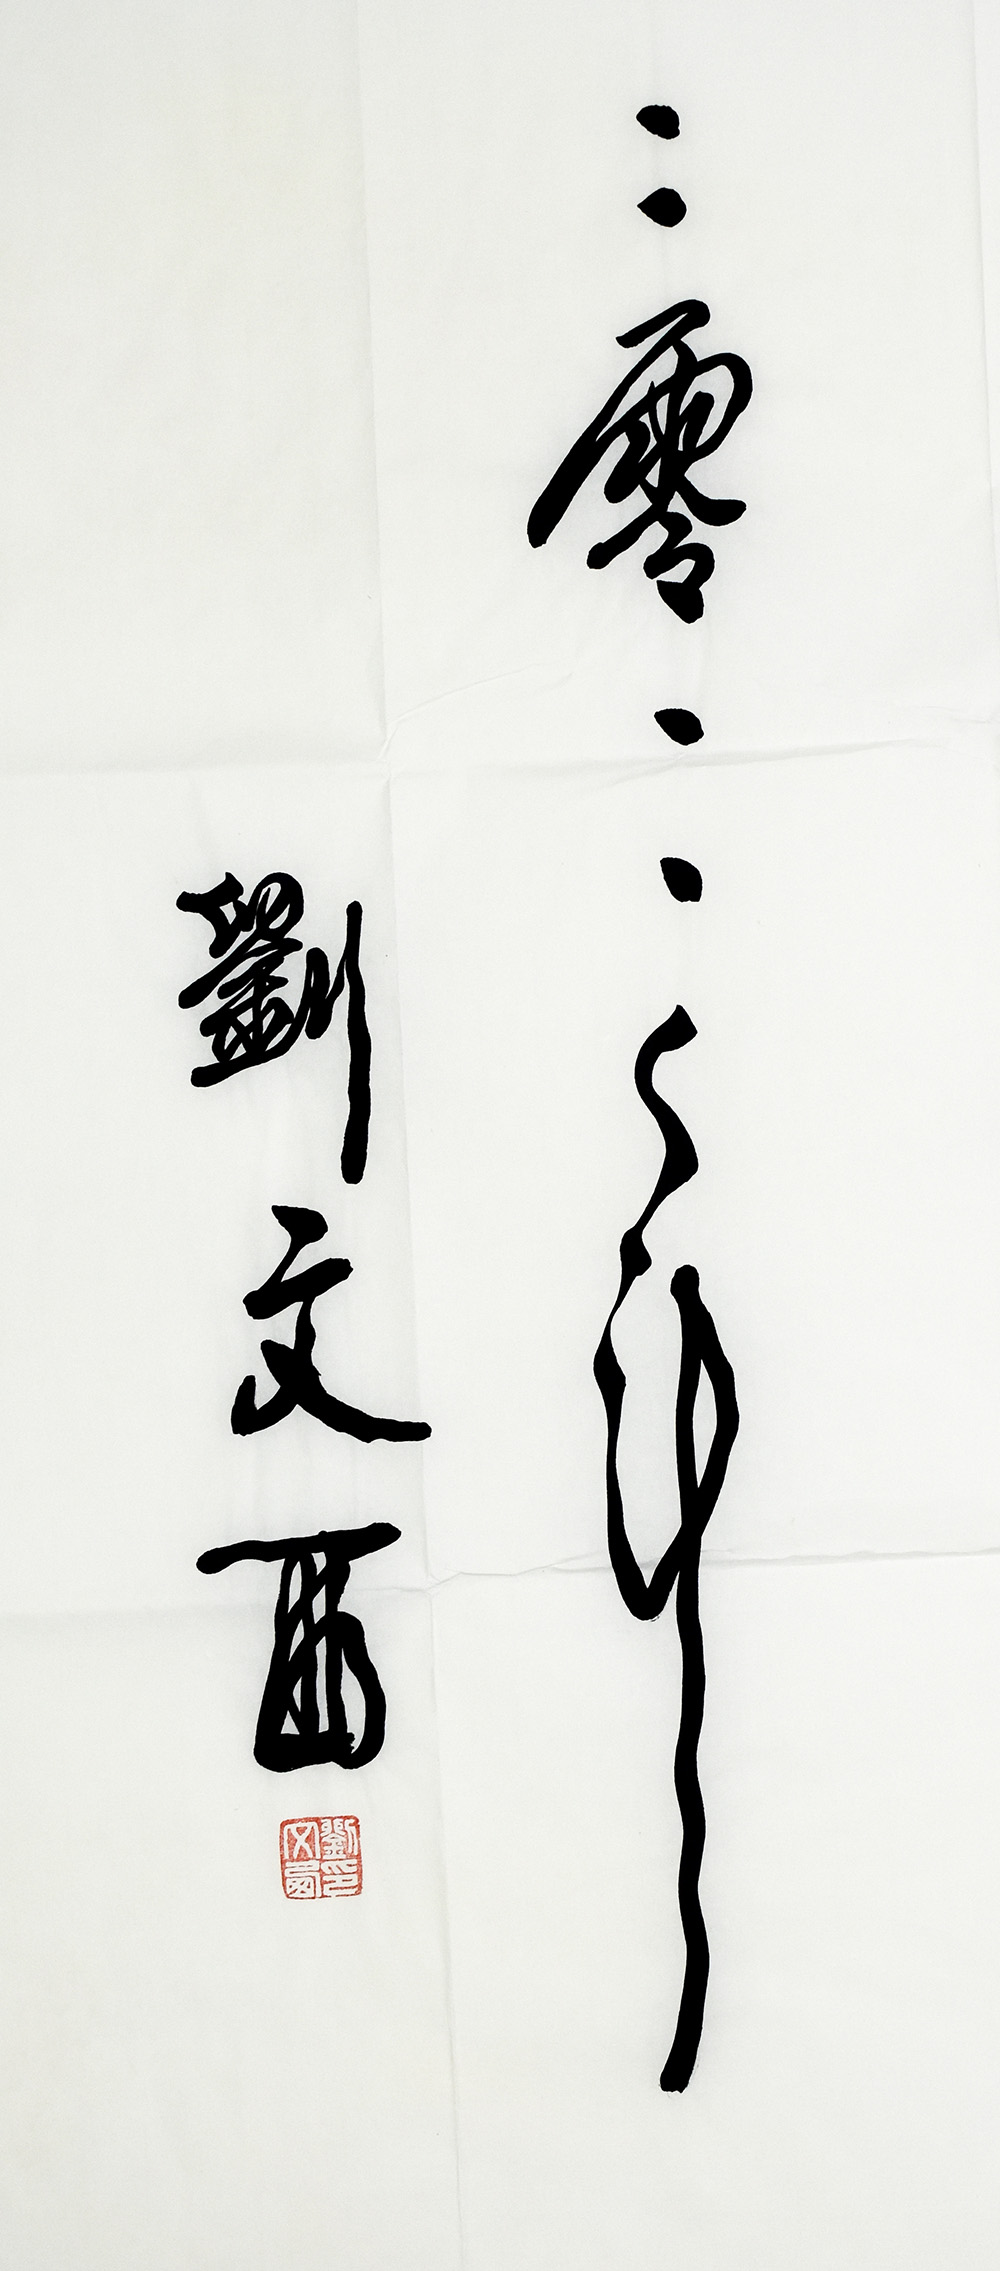 二零一一年
劉文西
劉印
文西